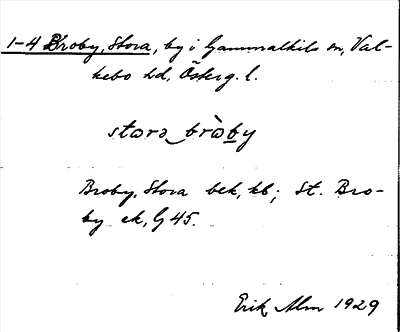 1-4 Broby, Stora, by i Gammalkils sn, Val-
kebo hd, Österg. l.
starə‿brὼby
Broby, Stora bek, kb; St. Bro-
by ek, G 45.
Erik Alm 1929